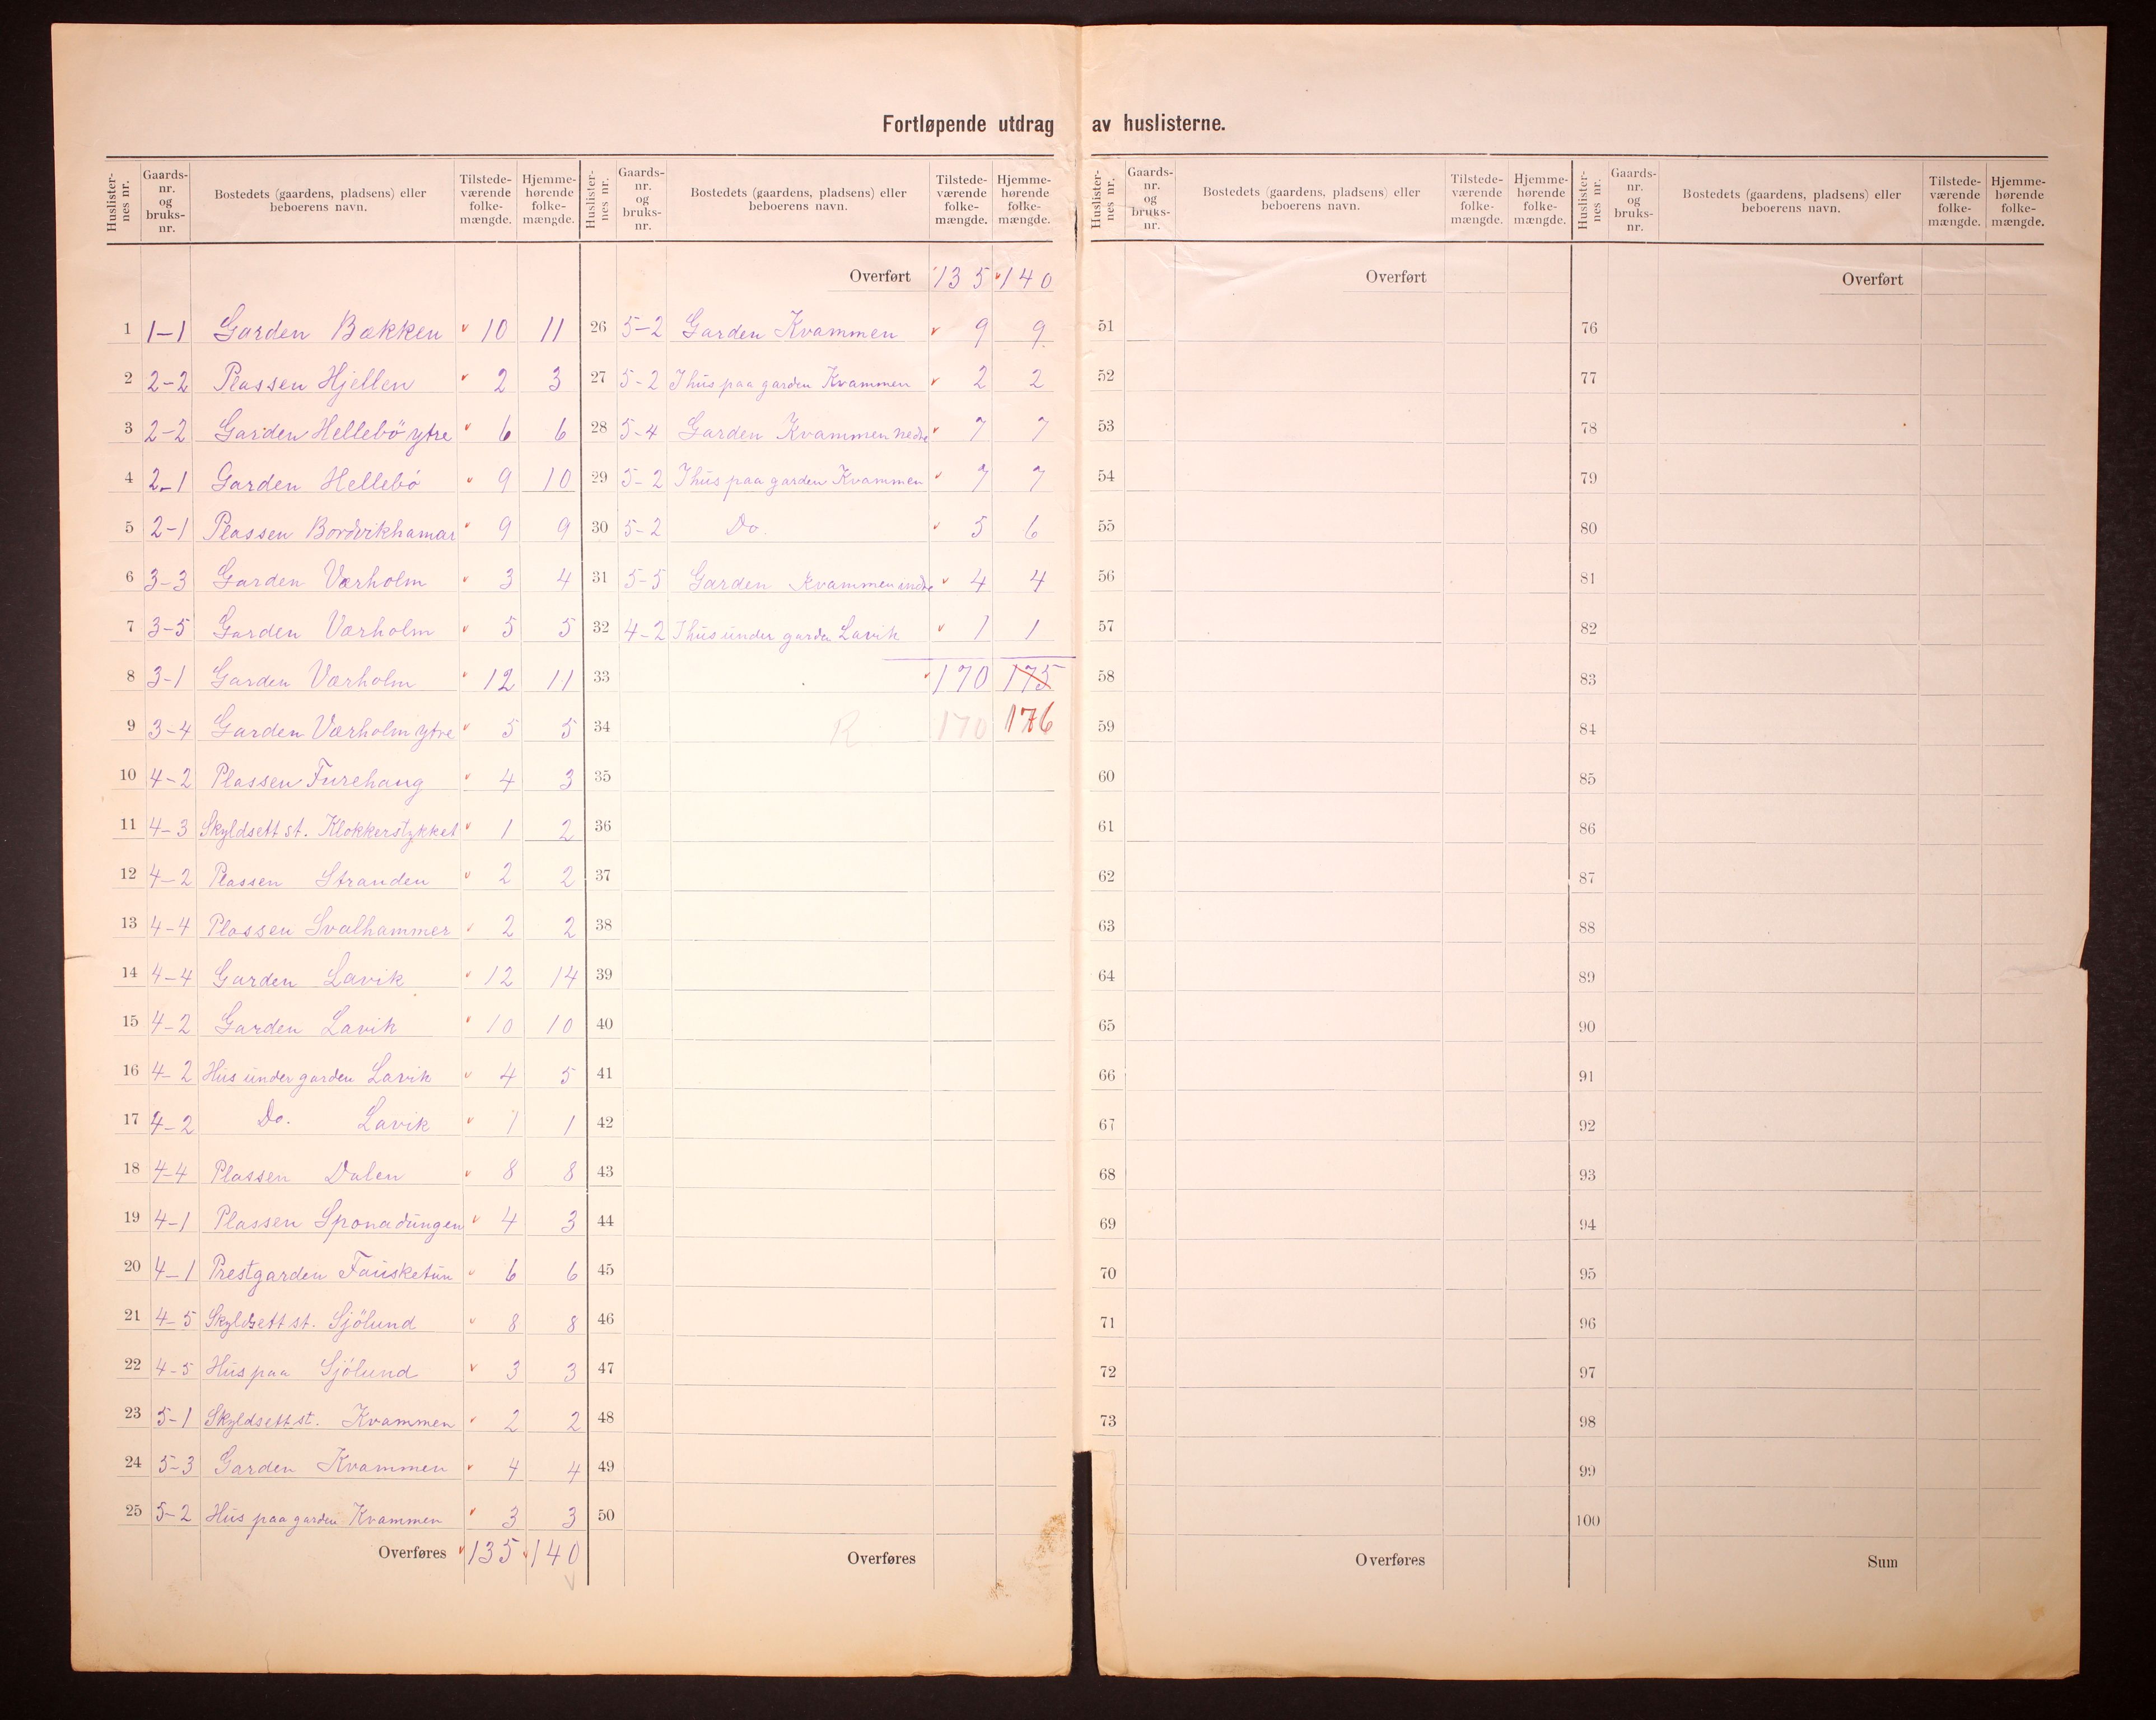 Fortløpende utdrag av huslisterne.
Huslister-nes nr. Gaards-nr. og bruks-nr. Bostedets (gaardens, pladsens) eller beboerens navn. Tilstede-værende folke-mængde. Hjemme-hørende folke-mængde.
1 1-1 Garden Bakken v 10 11
2 2-2 Plassen Hjellen v 2 3
3 2-2 Garden Hellebö ytre v 6 6
4 2-1 Garden Hellebö v 9 10
5 2-1 Plassen Bordvikhamar v 9 9
6 3-3 Garden Værholm v 3 4
7 3-5 Garden Værholm v 5 5
8 3-1 Garden Værholm v 12 11
9 3-4 Garden Værholm ytre v 5 5
10 4-2 Plassen Furehaug v 4 3
11 4-3 Skyldsett st. Klokkerstykket v 1 2
12 4-2 Plassen Stranden v 2 2
13 4-4 Plassen Svalhammer v 2 2
14 4-4 Garden Lavik v 12 14
15 4-2 Garden Lavik v 10 10
16 4-2 Hus under garden Lavik v 4 5
17 4-2 Do. Lavik v 1 1
18 4-4 Plassen Dalen v 8 8
19 4-1 Plassen Sponadungen v 4 3
20 4-1 Prestgarden Fausketun v 6 6
21 4-5 Skyldsett st. Sjölund v 8 8
22 4-5 Hus paa Sjölund v 3 3
23 5-1 Skyldsett st. Kvammen v 2 2
24 5-3 Garden Kvammen v 4 4
25 5-2 Hus paa garden Kvammen v 3 3
Overføres v 135 v 140
Huslister-nes nr. Gaards-nr. og bruks-nr. Bostedets (gaardens, pladsens) eller beboerens navn. Tilstede-værende folke-mængde. Hjemme-hørende folke-mængde.
Overført 135 v 140
26 5-2 Garden Kvammen v 9 9.
27 5-2 I hus paa garden Kvammen v 2 2
28 5-4 Garden Kvammen nedre v 7 7
29 5-2 I hus paa garden Kvammen v 7 7
30 5-2 Do. v 5 6
31 5-5 Garden Kvammen indre v 4 4
32 4-2 I hus under garden Lavik v 1 1
33 v 170 175
34 R. 170 176
35
36
37
38
39
40
41
42
43
44
45
46
47
48
49
50
Overføres
Huslister-nes nr. Gaards-nr. og bruks-nr. Bostedets (gaardens, pladsens) eller beboerens navn. Tilstede-værende folke-mængde. Hjemme-hørende folke-mængde.
Overført
51
52
53
54
55
56
57
58
59
60
61
62
63
64
65
66
67
68
69
70
71
72
73
Overføres
Huslister-nes nr. Gaards-nr. og bruks-nr. Bostedets (gaardens, pladsens) eller beboerens navn. Tilstede-værende folke-mængde. Hjemme-hørende folke-mængde.
Overført
76
77
78
79
80
81
82
83
84
85
86
87
88
89
90
91
92
93
94
95
96
97
98
99
100
Sum